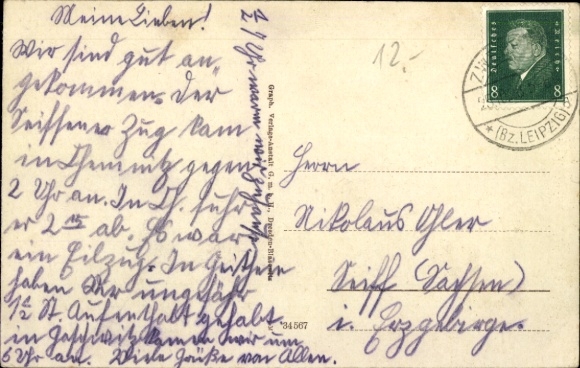 Meine Lieben!
Wir sind gut an
gekommen. Der
Seiffener Zug kam
in Chemnitz gegen
2 Uhr an. In Ch. fuhr
er 2 15 ab. Es war
ein Eilzug. In
haben wir ungefähr
1 St. Aufenthalt gehabt
in wir um
6 Uhr an. Viele Grüße von Allen.
Uhr waren wir
12.-
Deutsches Reich
8 8
(Bz. LEIPZIG)
Graph. Verlags-Anstalt G. m. b. H., Dresden
*34567
Herrn
Nikolaus
Seiff (Sachsen)
i. Erzgebirge.